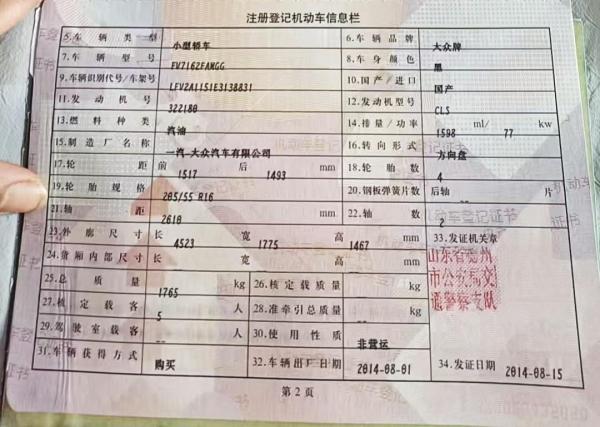 注册登记机动车信息栏
5.车辆类型 小型轿车 6.车辆品牌 大众牌
7.车辆型号 FV7162FAMGG 8.车身颜色 黑
9.车辆识别代号/车架号 LFV2A1151E3138831 10.国产/进口 国产
11.发动机号 322180 12.发动机型号 CLS
13.燃料种类 汽油 14.排量/功率 1598 ml/ 77 kw
15.制造厂名称 一汽-大众汽车有限公司 16.转向形式 方向盘
17.轮距 前 1517 后 1493 mm 18.轮胎数 4
19.轮胎规格 205/55 R16 20.钢板弹簧片数 后轴 -- 片
21.轴距 2610 mm 22.轴数 2
23.外廓尺寸 长 4523 宽 1775 高 1467 mm 33.发证机关章
24.货厢内部尺寸 长 -- 宽 -- 高 -- mm
山东省德州
市公安局交
通警察支队
25.总质量 1765 kg 26.核定载质量 -- kg
27.核定载客 5 人 28.准牵引总质量 -- kg
29.驾驶室载客 -- 人 30.使用性质 非营运
31.车辆获得方式 购买 32.车辆出厂日期 2014-08-01 34.发证日期 2014-08-15
第2页